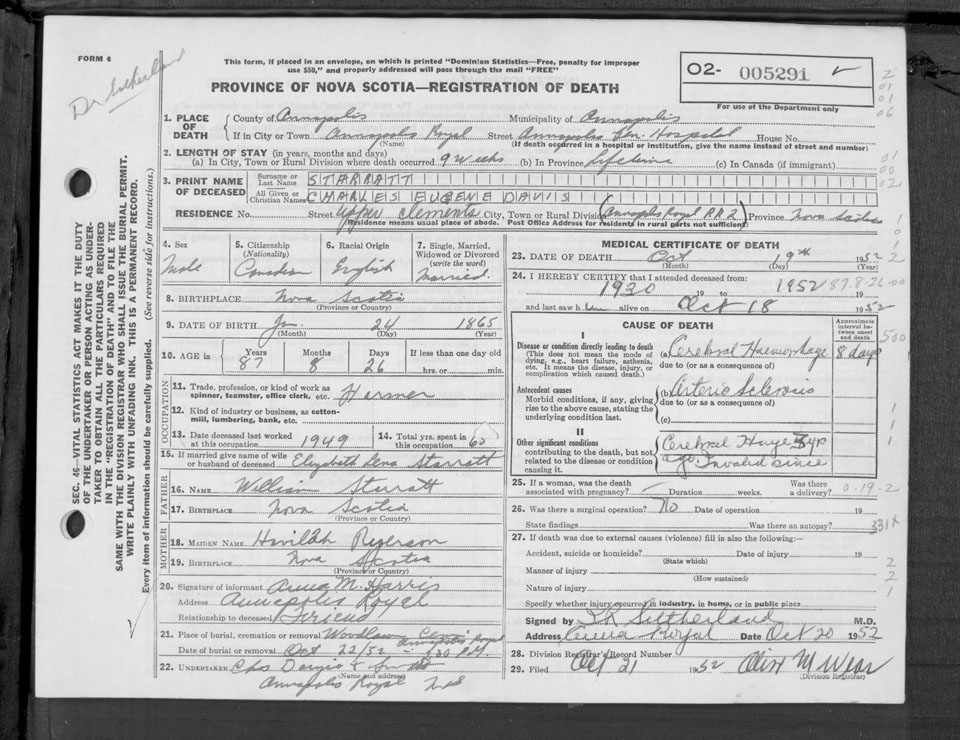 FORM 6
Dr Sutherland
This form, if placed in an envelope, on which is printed "Dominion Statistics—Free, penalty for improper
use $50," and properly addressed will pass through the mail "FREE"
O2- 005291
PROVINCE OF NOVA SCOTIA—REGISTRATION OF DEATH
For use of the Department only
1. PLACE OF DEATH
County of Annapolis Municipality of Annapolis
If in City or Town Annapolis Royal Street Annapolis Gen. Hospital House No.
(Name) (If death occurred in a hospital or institution, give the name instead of street and number)
2. LENGTH OF STAY (in years, months and days)
(a) In City, Town or Rural Division where death occurred 9 weeks (b) In Province Lifetime (c) In Canada (if immigrant)
3. PRINT NAME OF DECEASED
Surname or Last Name STARRATT
All Given or Christian Names CHARLES EUGENE DAVIS
RESIDENCE No. Street Upper Clements City, Town or Rural Division (Annapolis Royal R.R.2) Province Nova Scotia
(Residence means usual place of abode. Post Office Address for residents in rural parts not sufficient)
SEC. 46—VITAL STATISTICS ACT MAKES IT THE DUTY
OF THE UNDERTAKER OR PERSON ACTING AS UNDER-
TAKER TO OBTAIN ALL THE PARTICULARS REQUIRED
IN THE "REGISTRATION OF DEATH" AND TO FILE THE
SAME WITH THE DIVISION REGISTRAR WHO SHALL ISSUE THE BURIAL PERMIT.
WRITE PLAINLY WITH UNFADING INK. THIS IS A PERMANENT RECORD.
Every item of information should be carefully supplied. (See reverse side for instructions.)
4. Sex
Male
5. Citizenship
(Nationality)
Canadian
6. Racial Origin
English
7. Single, Married,
Widowed or Divorced
(write the word)
Married.
8. BIRTHPLACE Nova Scotia
(Province or Country)
9. DATE OF BIRTH Jan. 24 1865
(Month) (Day) (Year)
10. AGE in
Years Months Days If less than one day old
87 8 26 hrs. or min.
OCCUPATION
11. Trade, profession, or kind of work as
spinner, teamster, office clerk, etc. Farmer
12. Kind of industry or business, as cotton-
mill, lumbering, bank, etc.
13. Date deceased last worked
at this occupation 1949
14. Total yrs. spent in
this occupation 60
15. If married give name of wife
or husband of deceased Elizabeth Lena Starratt
FATHER
16. NAME William Starratt
17. BIRTHPLACE Nova Scotia
(Province or Country)
MOTHER
18. MAIDEN NAME Havilah Ryerson
19. BIRTHPLACE Nova Scotia
(Province or Country)
20. Signature of informant Anna M. Harris
Address Annapolis Royal
Relationship to deceased Friend
21. Place of burial, cremation or removal Woodlawn Cem. Annapolis Royal
Date of burial or removal Oct 22/52 — 2.30 P.M.
22. UNDERTAKER Chas Dargie &
(Name and address)
Annapolis Royal N.S
MEDICAL CERTIFICATE OF DEATH
23. DATE OF DEATH Oct 19th 1952
(Month) (Day) (Year)
24. I HEREBY CERTIFY that I attended deceased from:
1930 19 to 1952 19 87-8-26-00
and last saw him alive on Oct 18 1952
CAUSE OF DEATH
Approximate
interval be-
tween onset
and death
I
Disease or condition directly leading to death
(This does not mean the mode of
dying, e.g., heart failure, asthenia,
etc. It means the disease, injury, or
complication which caused death.)
(a) Cerebral Haemorrhage 8 days
due to (or as a consequence of)
Antecedent causes
Morbid conditions, if any, giving
rise to the above cause, stating the
underlying condition last.
(b) Arterio Sclerosis
due to (or as a consequence of)
(c)
II
Other significant conditions
contributing to the death, but not
related to the disease or condition
causing it.
Cerebral Hage 8 yr
ago. Invalid since
25. If a woman, was the death
associated with pregnancy? Duration weeks. Was there a delivery? 0-19-2
26. Was there a surgical operation? No Date of operation 19
State findings Was there an autopsy? 331X
27. If death was due to external causes (violence) fill in also the following:—
Accident, suicide or homicide? Date of injury 19
(State which)
Manner of injury
(How sustained)
Nature of injury
Specify whether injury occurred in industry, in home, or in public place
Signed by Sutherland M.D.
Address Anna Royal Date Oct 20 1952
28. Division Registrar's Record Number
29. Filed Oct 21 1952
(Division Registrar)